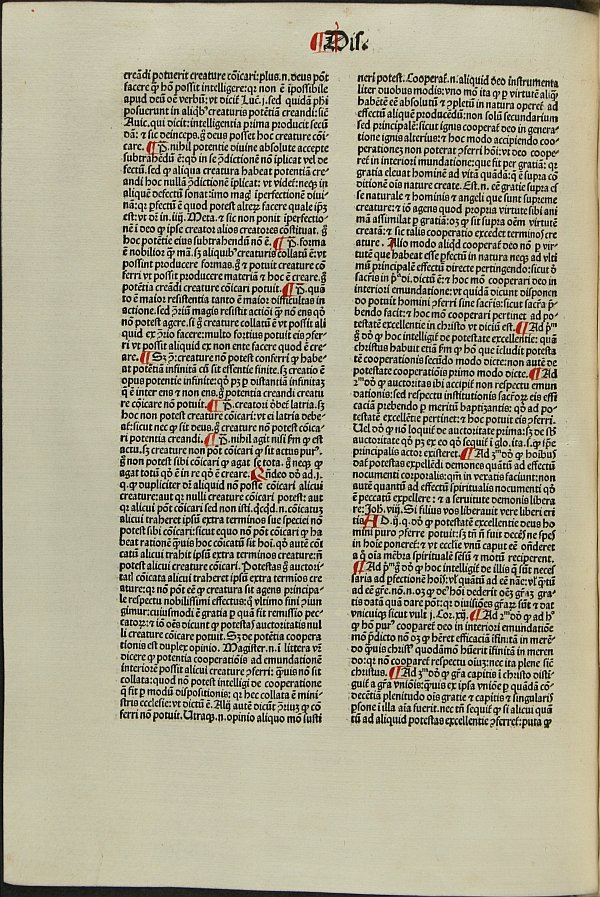 ¶ Dis.
creādi potuerit creature cōicari: plus .n. deus pōt
facere qͫ hō possit intelligere: qr non ē ipossibile
apud deū oē verbū: vt dicit Luc. j. sed quidā phi
posuerunt in aliqbꝰ creaturis potētiā creandi: sic
Auic. qui dicit: intelligentia prima producit secū
dā: ⁊ sic deinceps. g deus posset hoc creature cōi-
care. ¶ P. nihil potentie diuine absolute accepte
subtrahēdū ē: qd in se ꝯdictionē nō iplicat vel de
fectū. sed ꝙ aliqua creatura habeat potentiā cre-
andi hoc nullā ꝯdictionē iplicat: vt videt: neqꝫ in
aliquē defectū sonat: imo magꝭ iperfectionē diui-
nā: qr pfectū ē quod potest alterꝝ facere quale ipꝫ
est: vt dr in .iiij. Metha. ⁊ sic non ponit iperfectio-
nē i deo ꝙ ipse creator alios creatores cōstituat. g
hoc potētie eius subtrahendū nō ē. ¶ P. forma
ē nobilior qͫ mā. sꝫ aliqbꝰ creaturis collatū ē: vt
possint producere formas. g ⁊ potuit creature cō
ferri vt possit producere materiā ⁊ hoc ē creare. g
potētia creādi creature cōicari potuit. ¶ P. quā
to ē maior resistentia tanto ē maior difficultas in
actione. sed ꝯriū magis resistit actiōi qͫ nō ens qd
nō potest agere. si g creature collatū ē vt possit ali
quid ex ꝯrio facere: multo fortius potuit eis ꝯfer-
ri vt possit aliquid ex non ente facere quod ē cre-
are. ¶ Sꝫ ꝯ: creature nō potest conferri ꝙ habe-
at potētiā infinitā cū sit essentie finite. sꝫ creatio ē
opus potentie infinite: qd pꝫ p distantiā infinitaꝫ
q ē inter ens ⁊ non ens. g potentia creandi creatu
re cōicare nō potuit. ¶ P. creatori dꝫ latria. sꝫ
hoc non potest creature cōicari: vt ei latria debe-
at: sicut nec ꝙ sit deus. g creature nō potest cōica-
ri potentia creandi. ¶ P. nihil agit nisi ꝙ est
actu. sꝫ creature non pōt cōicari ꝙ sit actus purꝰ.
g non potest sibi cōicari ꝙ agat se tota. g neqꝫ ꝙ
agat totū qd ē in re qd ē creare. Rñdeo dd ad .j.
q. ꝙ dupliciter dr aliquid nō posse cōicari alicui
creature: aut qr nulli creature cōicari potest: aut
qr alicui pōt cōicari sed non isti. qcqd .n. cōicatuꝫ
alicui traheret ipsū extra terminos sue speciei nō
potest sibi cōicari: sicut equo nō pōt cōicari ꝙ ha
beat rationē quis hoc cōicatū sit hoi. qd autē cōi
catū alicui trahit ipsū extra terminos creature: nō
potest alicui creature cōicari. Potestas g auctori-
tatꝭ cōicata alicui traheret ipsū extra termios cre
ature: qr nō pōt eē ꝙ creatura sit agens principa-
le respectu nobilissimi effectus: q vltimo fini ꝯiun
gimur: cuiusmodi ē gratia p quā fit remissio pec-
catoꝝ: ⁊ iō oēs dicunt ꝙ potestas auctoritatis nul
li creature cōicare potuit. Sꝫ de potētia coopera
tionis est duplex opinio. Magister .n. i littera vr
dicere ꝙ potentia cooperatiōis ad emundationē
interiorē possit alicui creature ꝯferri: quis nō sit
collata: quod nō potest intelligi de cooperatione
q fit p modū dispositionis: qr hec collata ē mini-
stris ecclesie: vt dictū ē. Alij autē dicūt ꝯriuꝫ ꝙ cō
ferri nō potuit. Utraqꝫ .n. opinio aliquo mō susti
neri potest. Cooperat .n. aliquid deo instrumenta
liter duobus modis: vno mō ita ꝙ p virtutē aliqͫ
habētē eē absolutū ⁊ ꝯpletū in natura operet ad
effectū aliquē producēdū: non solū secundarium
sed principale: sicut ignis cooperat deo in genera
tione ignis alterius: ⁊ hoc modo accipiendo coo-
perationeꝫ non poterat ꝯferri hoi: vt deo coope-
ref in interiori mundatione: que fit per gratiā: qr
gratia eleuat hominē ad vitā quādā: q ē supra cō
ditionē ois nature create. Est .n. eē gratie supra eē
se naturale ⁊ hominis ⁊ angeli que sunt supreme
creature: ⁊ iō agens quod propria virtute sibi ani
mā assimilat p gratiā: oꝫ ꝙ sit supra oēm virtutē
creatā: ⁊ sic talis cooperatio excedet terminos cre
ature. Alio modo aliqd cooperat deo nō p vir-
tutē que habeat esse pfectū in natura neqꝫ ad vlti
mū principalē effectū directe pertingendo: sicut d
sacris in pꝰ. di. dictū ē: ⁊ hoc mō cooperari deo in
interiori emundatione: vt quidā dicunt disponen
do potuit homini ꝯferri sine sacris: sicut sacra p
bendo facit: ⁊ hoc mō cooperari pertinet ad po-
testatē excellentie in christo vt dictū est. ¶ Ad pͫ
g dd ꝙ hoc intelligif de potestate excellentie: quā
christus habuit etiā ꝙ hō que icludit potesta
tē cooperationis secūdo modo dicte: non autē de
potestate cooperatiōis primo modo dicte. ¶ Ad
2ͫ dd ꝙ auctoritas ibi accipit non respectu emun
dationis: sed respectu institutionis sacroꝝ eis effi
caciā prebendo p meritū baptizantis: qd ad po-
testatē excellētie pertinet: ⁊ hoc potuit eis ꝯferri.
Uel dd ꝙ nō loquif de auctoritate prima: sꝫ de sb
auctoritate qd pꝫ ex eo qd sequit i glo. ita .s. ꝙ ipe
principalis actor existeret. ¶ Ad 3ͫ dd ꝙ hoibus
daf potestas expellēdi demones quātū ad effectū
nocumenti corporalis: qͫ in vexatis faciunt: non
autē quantū ad effectū spiritualis nocumenti qd
ē peccatū expellere: ⁊ a seruitute demonis libera
re: Joh. viij. Si filius vos liberauit vere liberi eri
tis. AD .ij. q. dd ꝙ potestatē excellentie deus ho
mini puro ꝯferre potuit: sꝫ tn nō fuit decēs ne spes
in hoie poneret: ⁊ vt ecclie vnū caput eē onderet
a q oia mēbra spirituale sēsū ⁊ motū reciperent.
¶ Ad pͫ g dd ꝙ hoc intelligif de illis q sūt neces
saria ad pfectionē hois: vl quātū ad eē nāe: vl qtū
ad eē gre. nō .n. oꝫ ꝙ de hoi dederit oēs grās gra
tis datas quā dare pōt: qr diuisiōes grarꝝ sūt ⁊ dāt
vnicuiqꝫ sicut vult j. Cor. xij. ¶ Ad 2ͫ dd ꝙ ad h
ꝙ hō purꝰ cooperaref deo in interiori emundatiōe
mō pdicto nō oꝫ ꝙ heret efficaciā ifinitā in merē-
do: quis christꝰ quodāmō hūerit ifinitā in meren
do: qr nō compararef respectu oiuꝫ: nec ita plene sic
christus. ¶ Ad 3ͫ dd ꝙ gra capitis i christo disti-
guif a gra vniōis: quis ex ipsa vniōe p quādā cō-
decētiā plenitudo ois gratie ⁊ capitis ⁊ singularis
psone i illa aia fuerit. nec tn sequit ꝙ si alicui quā
tū ad aliquid potestas excellentie ꝯferref: puta ꝙ